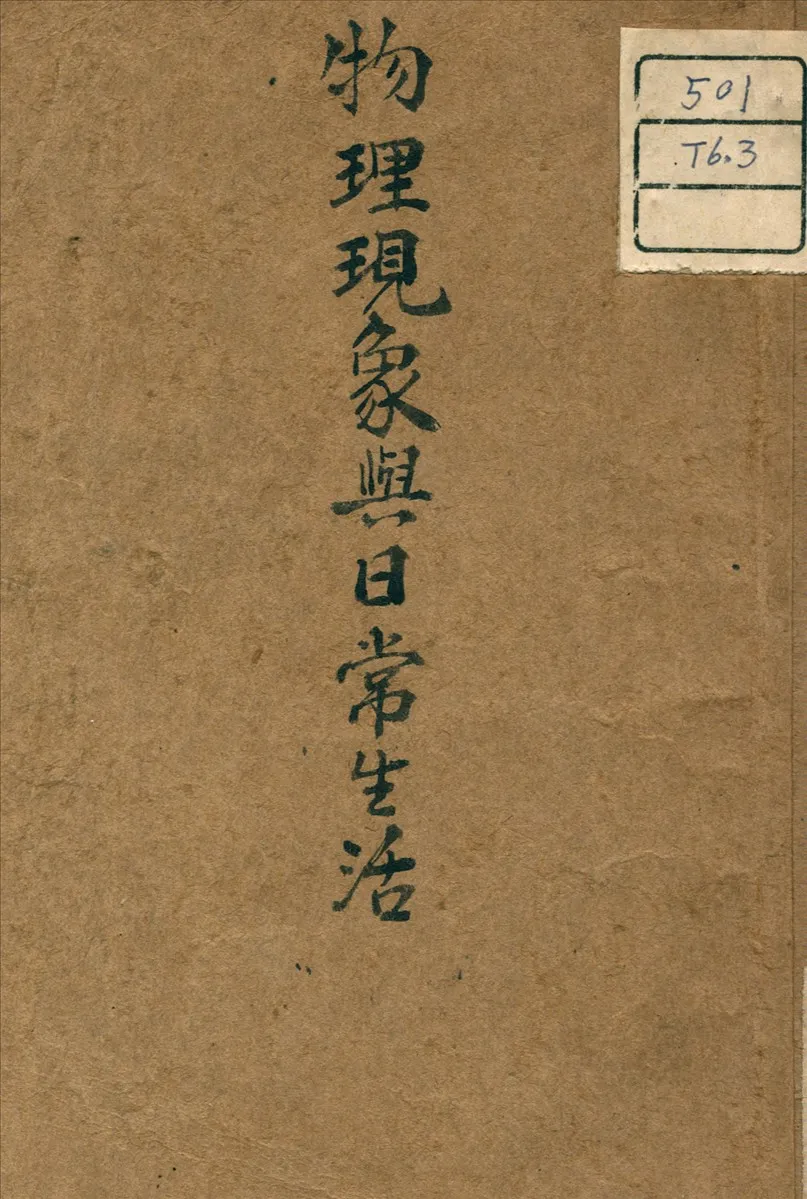 物理現象與日常生活
501
T6.3